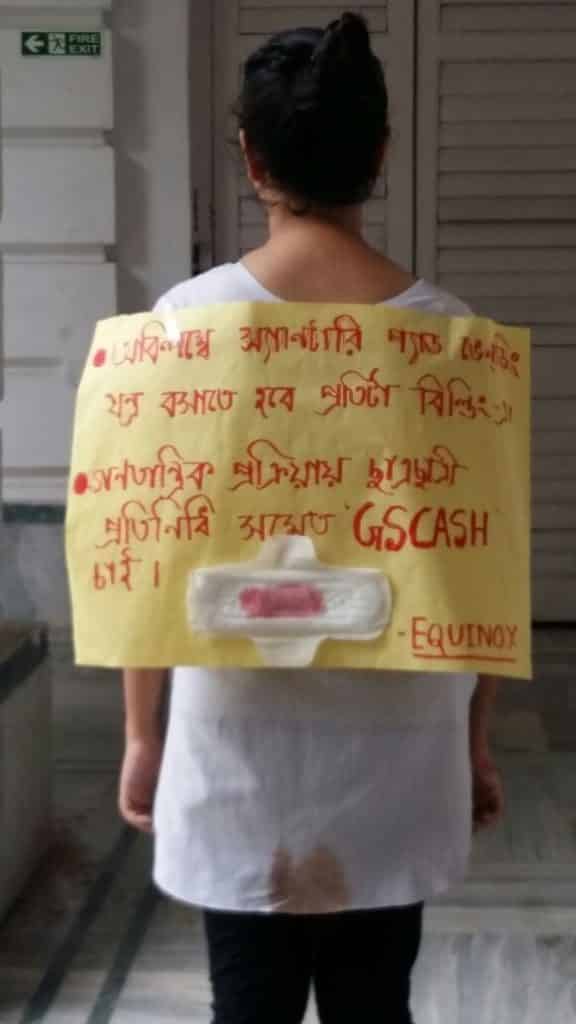 FIRE
EXIT
অবিলম্বে স্যানিটারি প্যাড ভেন্ডিং
যন্ত্র বসাতে হবে প্রতিটা বিল্ডিং-এ।
গনতান্ত্রিক প্রক্রিয়ায় ছাত্রছাত্রী
প্রতিনিধি সমেত 'GSCASH
চাই।
- EQUINOX